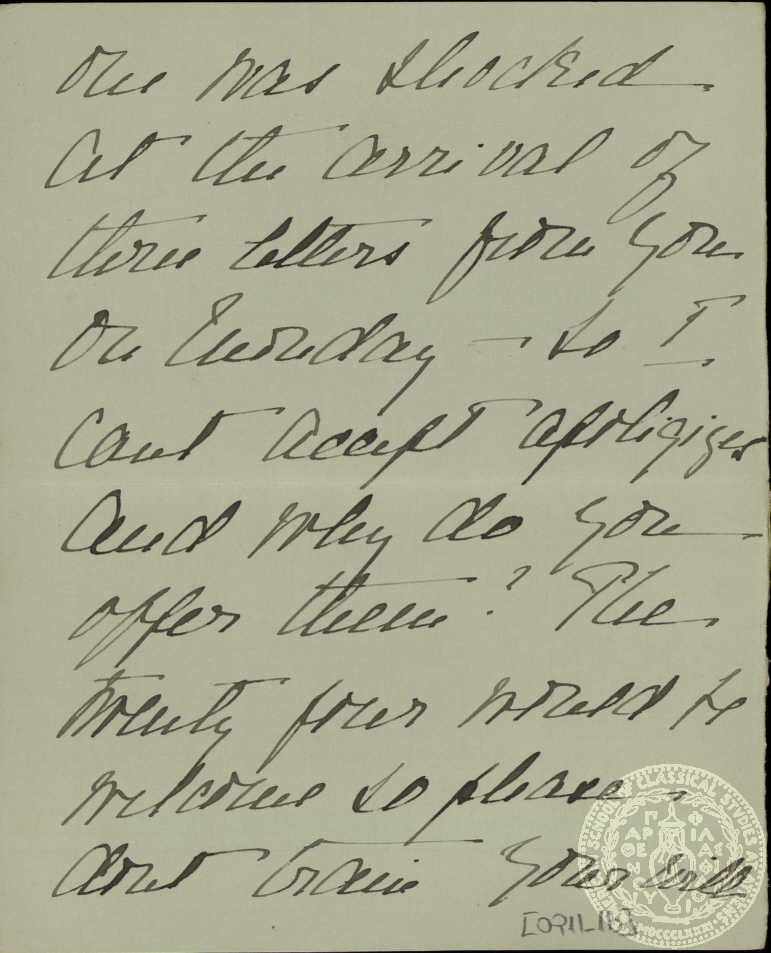 one was shocked
at the arrival of
three letters from you
on Monday — so I
cant accept apoligizes
and why do you
offer them? The
twenty four would be
welcome so please -
dont train your will